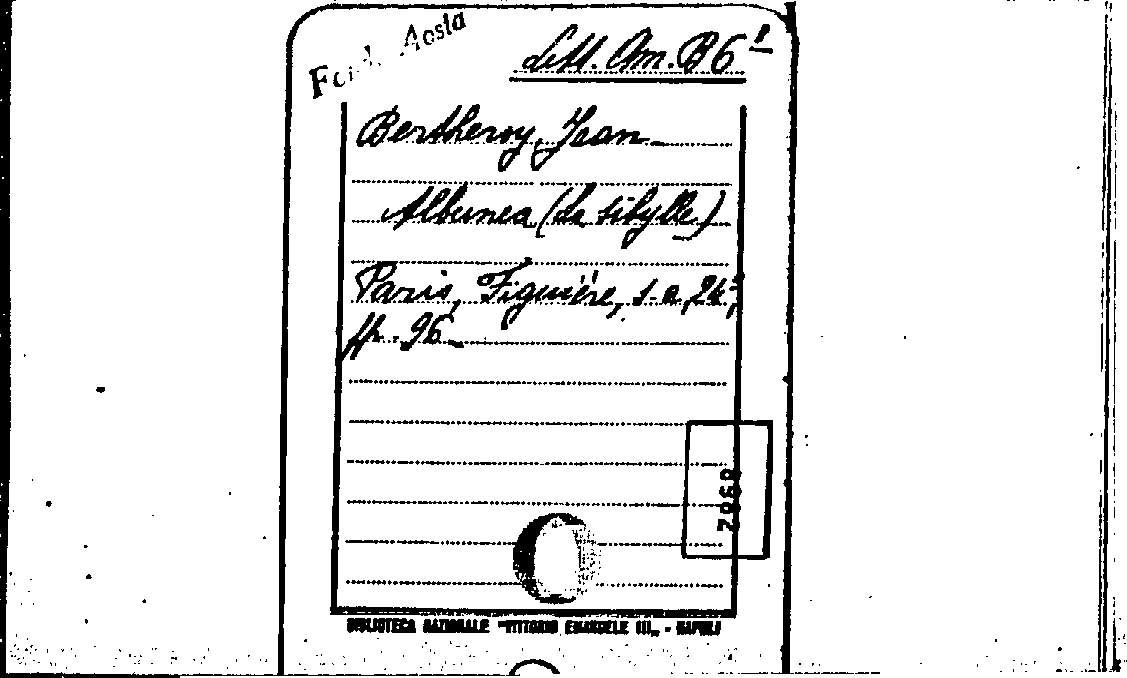 Fond. Aosta
Lett. Am. B 6¹
Bertheroy, Jean
Albunea (La sibylle)
Paris, Figuière, s. a, 24°,
pp. 96
BIBLIOTECA NAZIONALE "VITTORIO EMANUELE III„ - NAPOLI